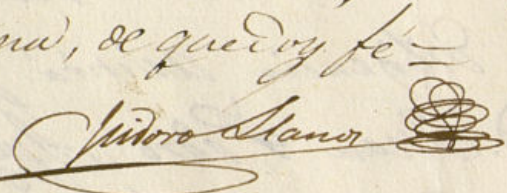 de que doy fé=
Isidoro Llanos